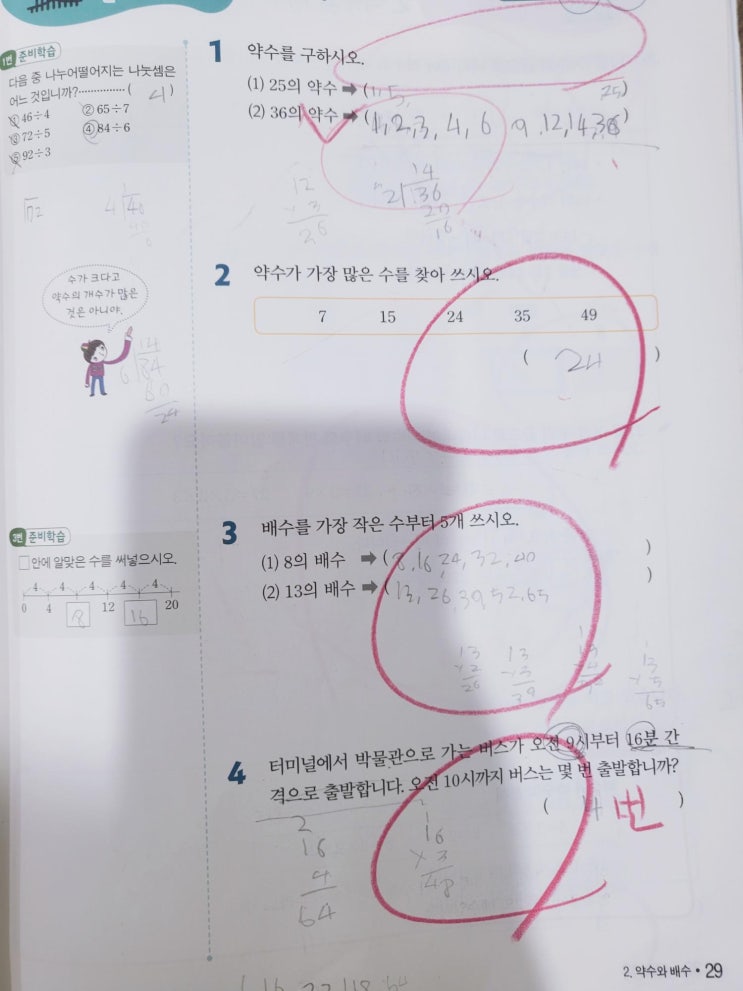 1번 준비학습
다음 중 나누어떨어지는 나눗셈은
어느 것입니까?·············( 4 )
① 46÷4 ② 65÷7
③ 72÷5 ④ 84÷6
⑤ 92÷3
수가 크다고
약수의 개수가 많은
것은 아니야.
14
6 84
60
24
3번 준비학습
□안에 알맞은 수를 써넣으시오.
4 4 4 4 4
0 4 8 12 16 20
1 약수를 구하시오.
(1) 25의 약수 ➡ (1, 5, 25)
(2) 36의 약수 ➡ (1, 2, 3, 4, 6 9, 12, 14, 36)
12
3
26
14
2 36
20
16
2 약수가 가장 많은 수를 찾아 쓰시오.
7 15 24 35 49
( 24 )
3 배수를 가장 작은 수부터 5개 쓰시오.
(1) 8의 배수 ➡ (8, 16, 24, 32, 40 )
(2) 13의 배수 ➡ (13, 26, 39, 52, 65 )
13 13 13
×2 ×3 ×5
26 39 65
4 터미널에서 박물관으로 가는 버스가 오전 9시부터 16분 간
격으로 출발합니다. 오전 10시까지 버스는 몇 번 출발합니까?
( 4 번 )
2
16
4
64
1
16
×3
48
2. 약수와 배수 • 29